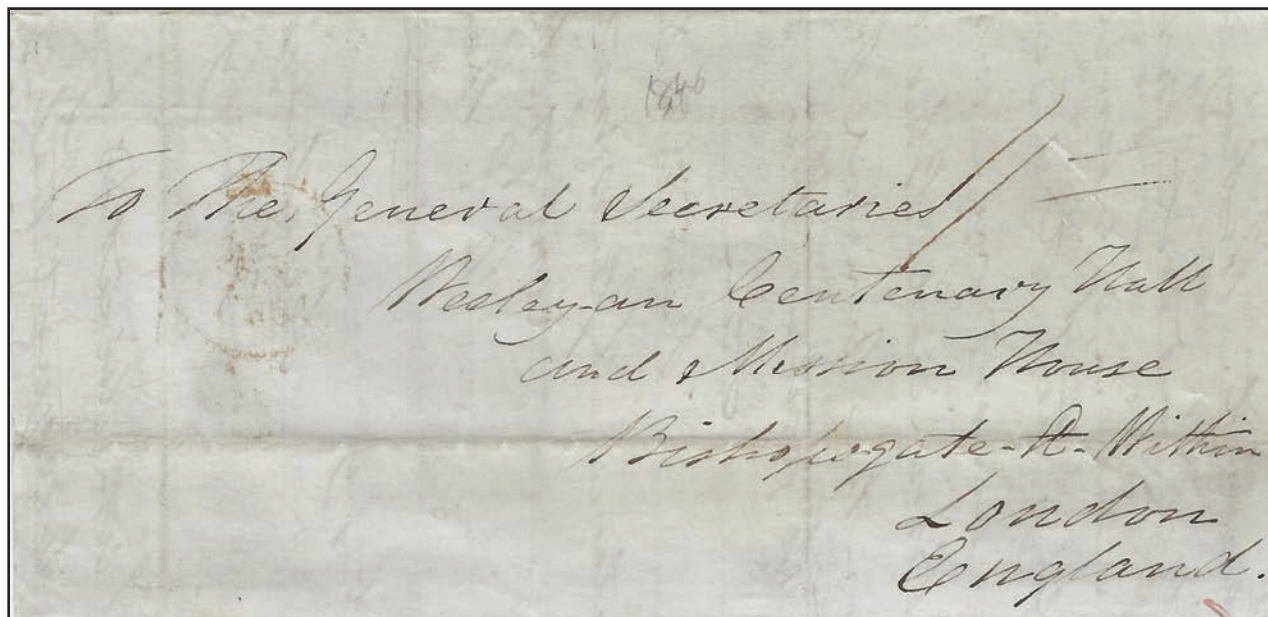 1846
To The General Secretaries 1/-
Wesleyan Centenary Hall
and Mission House
Bishopsgate-St-Within
London
England.